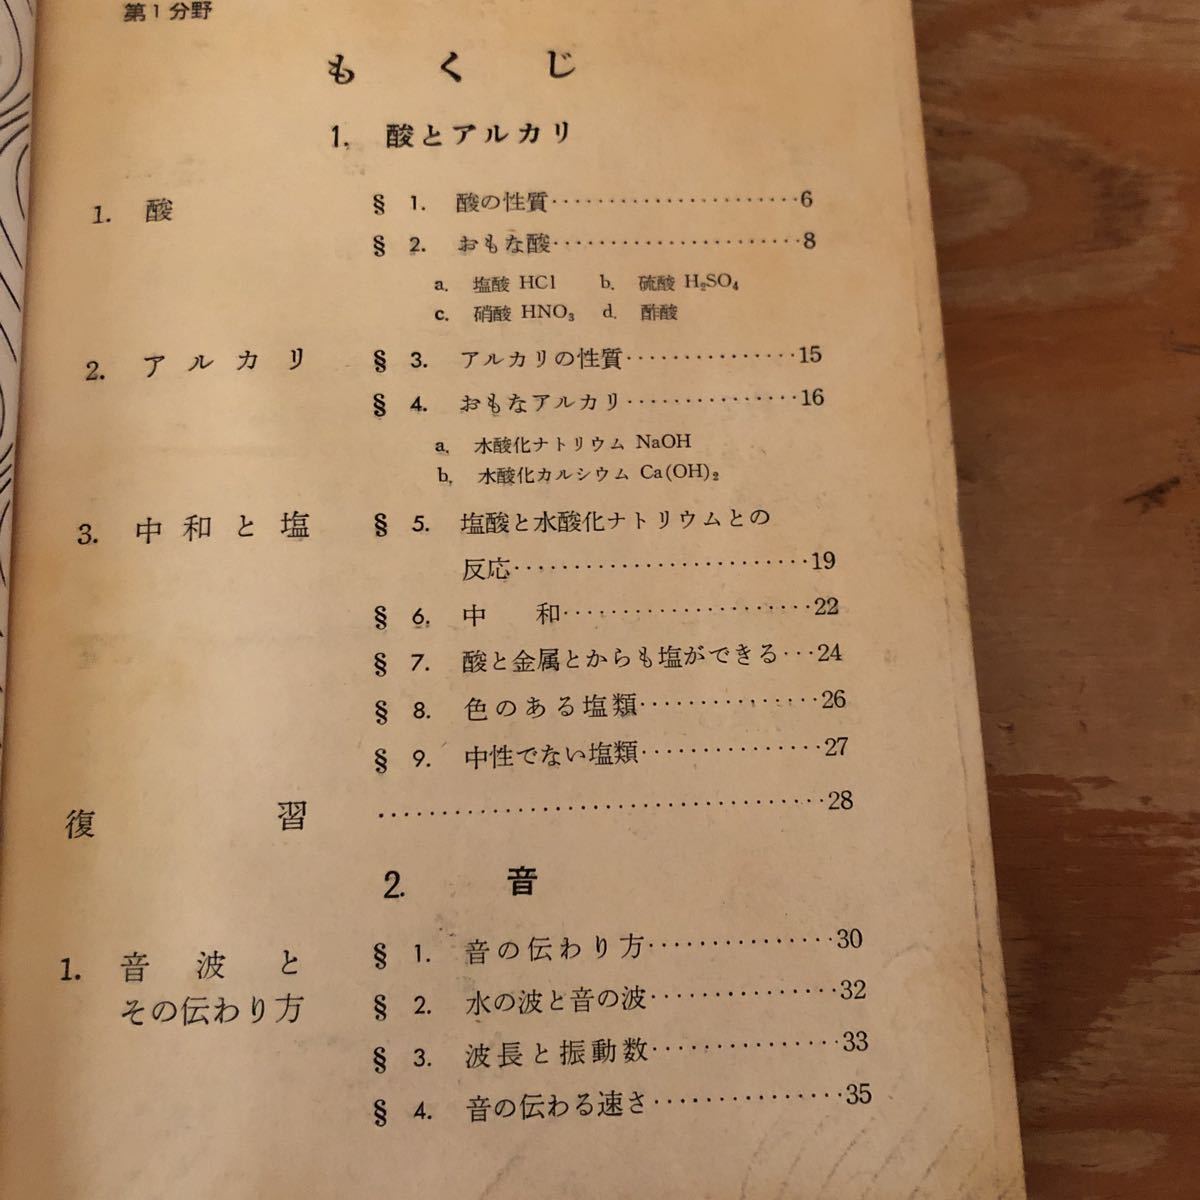 第1分野
もくじ
1. 酸とアルカリ
1. 酸 § 1. 酸の性質……………………6
§ 2. おもな酸……………………8
a. 塩酸 HCl b. 硫酸 H₂SO₄
c. 硝酸 HNO₃ d. 酢酸
2. アルカリ § 3. アルカリの性質……………15
§ 4. おもなアルカリ……………16
a. 水酸化ナトリウム NaOH
b. 水酸化カルシウム Ca(OH)₂
3. 中和と塩 § 5. 塩酸と水酸化ナトリウムとの
反応………………………19
§ 6. 中和……………………22
§ 7. 酸と金属とからも塩ができる…24
§ 8. 色のある塩類……………26
§ 9. 中性でない塩類……………27
復習……………………………………28
2. 音
1. 音波と § 1. 音の伝わり方……………30
その伝わり方 § 2. 水の波と音の波……………32
§ 3. 波長と振動数……………33
§ 4. 音の伝わる速さ……………35